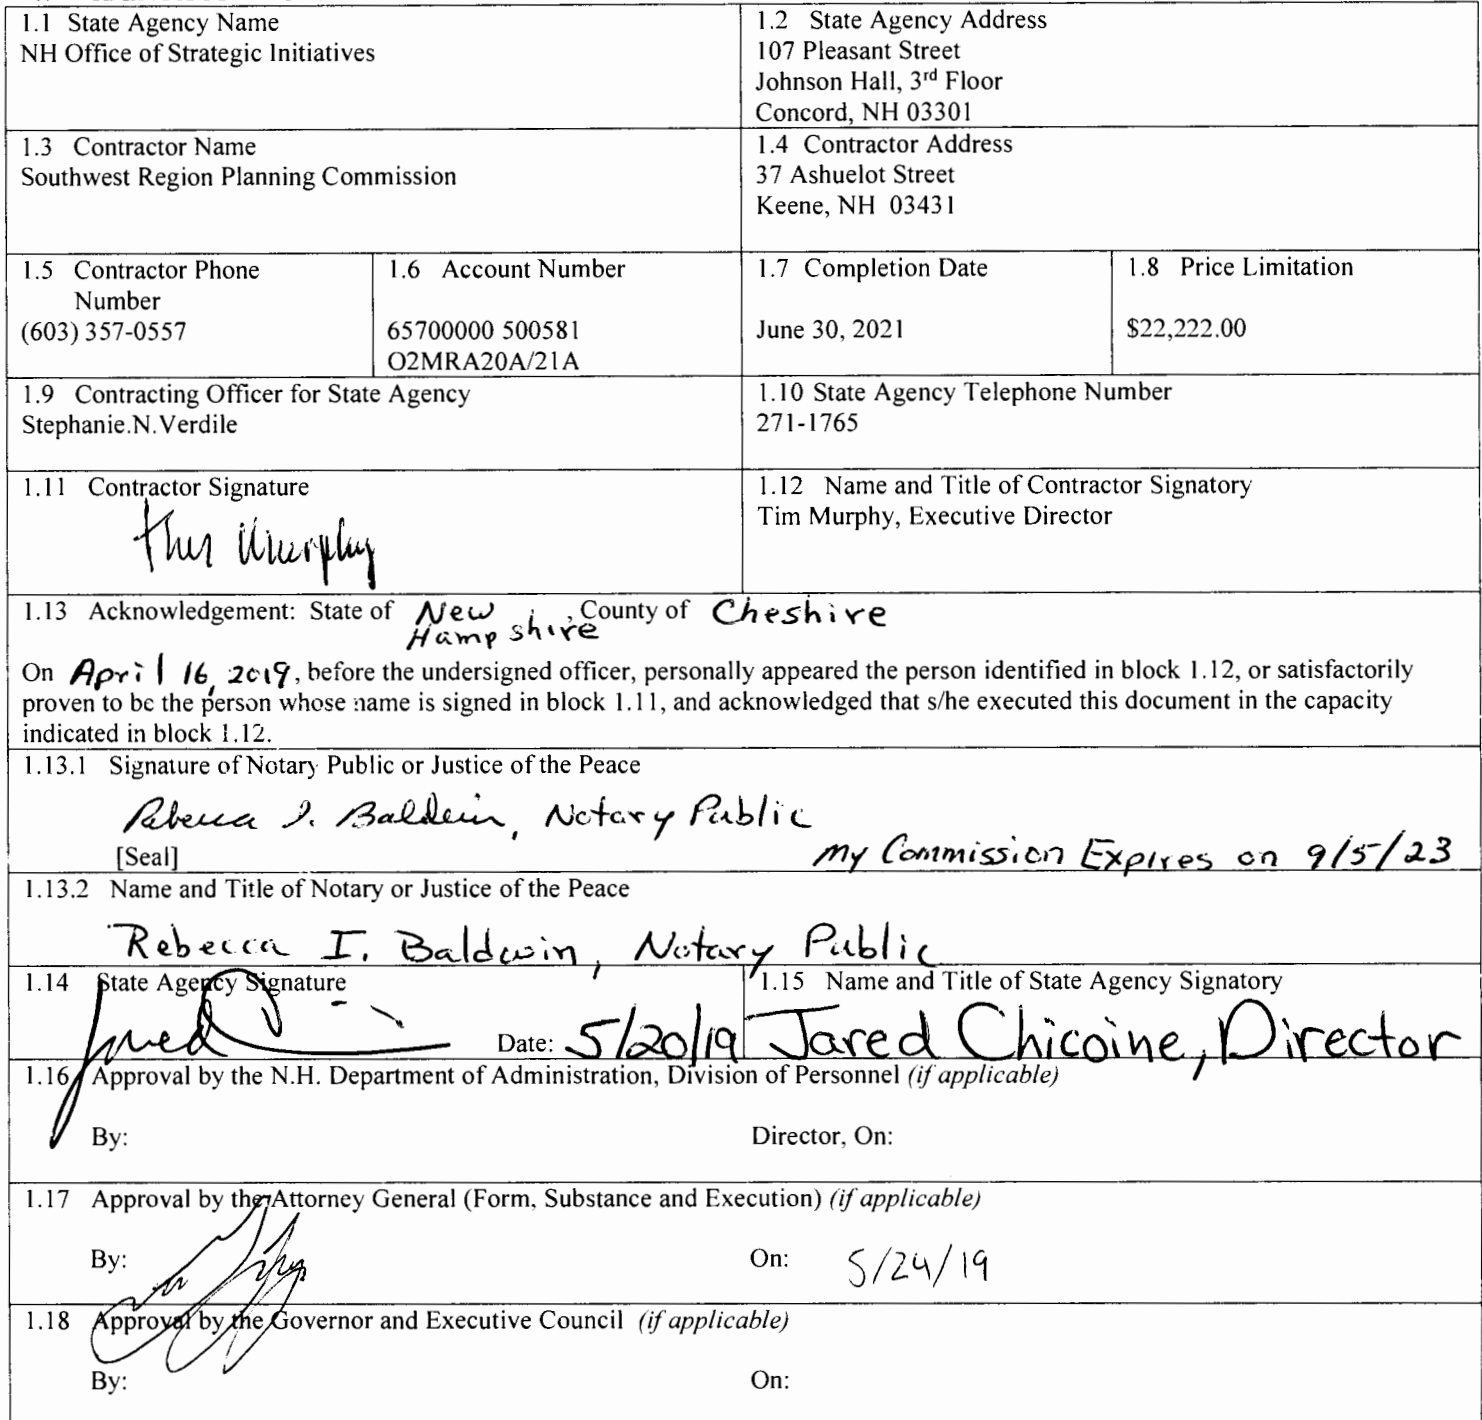 1.1 State Agency Name
NH Office of Strategic Initiatives
1.2 State Agency Address
107 Pleasant Street
Johnson Hall, 3rd Floor
Concord, NH 03301
1.3 Contractor Name
Southwest Region Planning Commission
1.4 Contractor Address
37 Ashuelot Street
Keene, NH 03431
1.5 Contractor Phone
Number
(603) 357-0557
1.6 Account Number
65700000 500581
O2MRA20A/21A
1.7 Completion Date
June 30, 2021
1.8 Price Limitation
$22,222.00
1.9 Contracting Officer for State Agency
Stephanie.N.Verdile
1.10 State Agency Telephone Number
271-1765
1.11 Contractor Signature
Murphy
1.12 Name and Title of Contractor Signatory
Tim Murphy, Executive Director
1.13 Acknowledgement: State of New Hampshire, County of Cheshire
On April 16, 2019, before the undersigned officer, personally appeared the person identified in block 1.12, or satisfactorily
proven to be the person whose name is signed in block 1.11, and acknowledged that s/he executed this document in the capacity
indicated in block 1.12.
1.13.1 Signature of Notary Public or Justice of the Peace
Rebecca I. Baldwin, Notary Public
[Seal] My Commission Expires on 9/5/23
1.13.2 Name and Title of Notary or Justice of the Peace
Rebecca I. Baldwin, Notary Public
1.14 State Agency Signature
Jared
Date: 5/20/19
1.15 Name and Title of State Agency Signatory
Jared Chicoine, Director
1.16 Approval by the N.H. Department of Administration, Division of Personnel (if applicable)
By: Director, On:
1.17 Approval by the Attorney General (Form, Substance and Execution) (if applicable)
By: On: 5/24/19
1.18 Approval by the Governor and Executive Council (if applicable)
By: On: